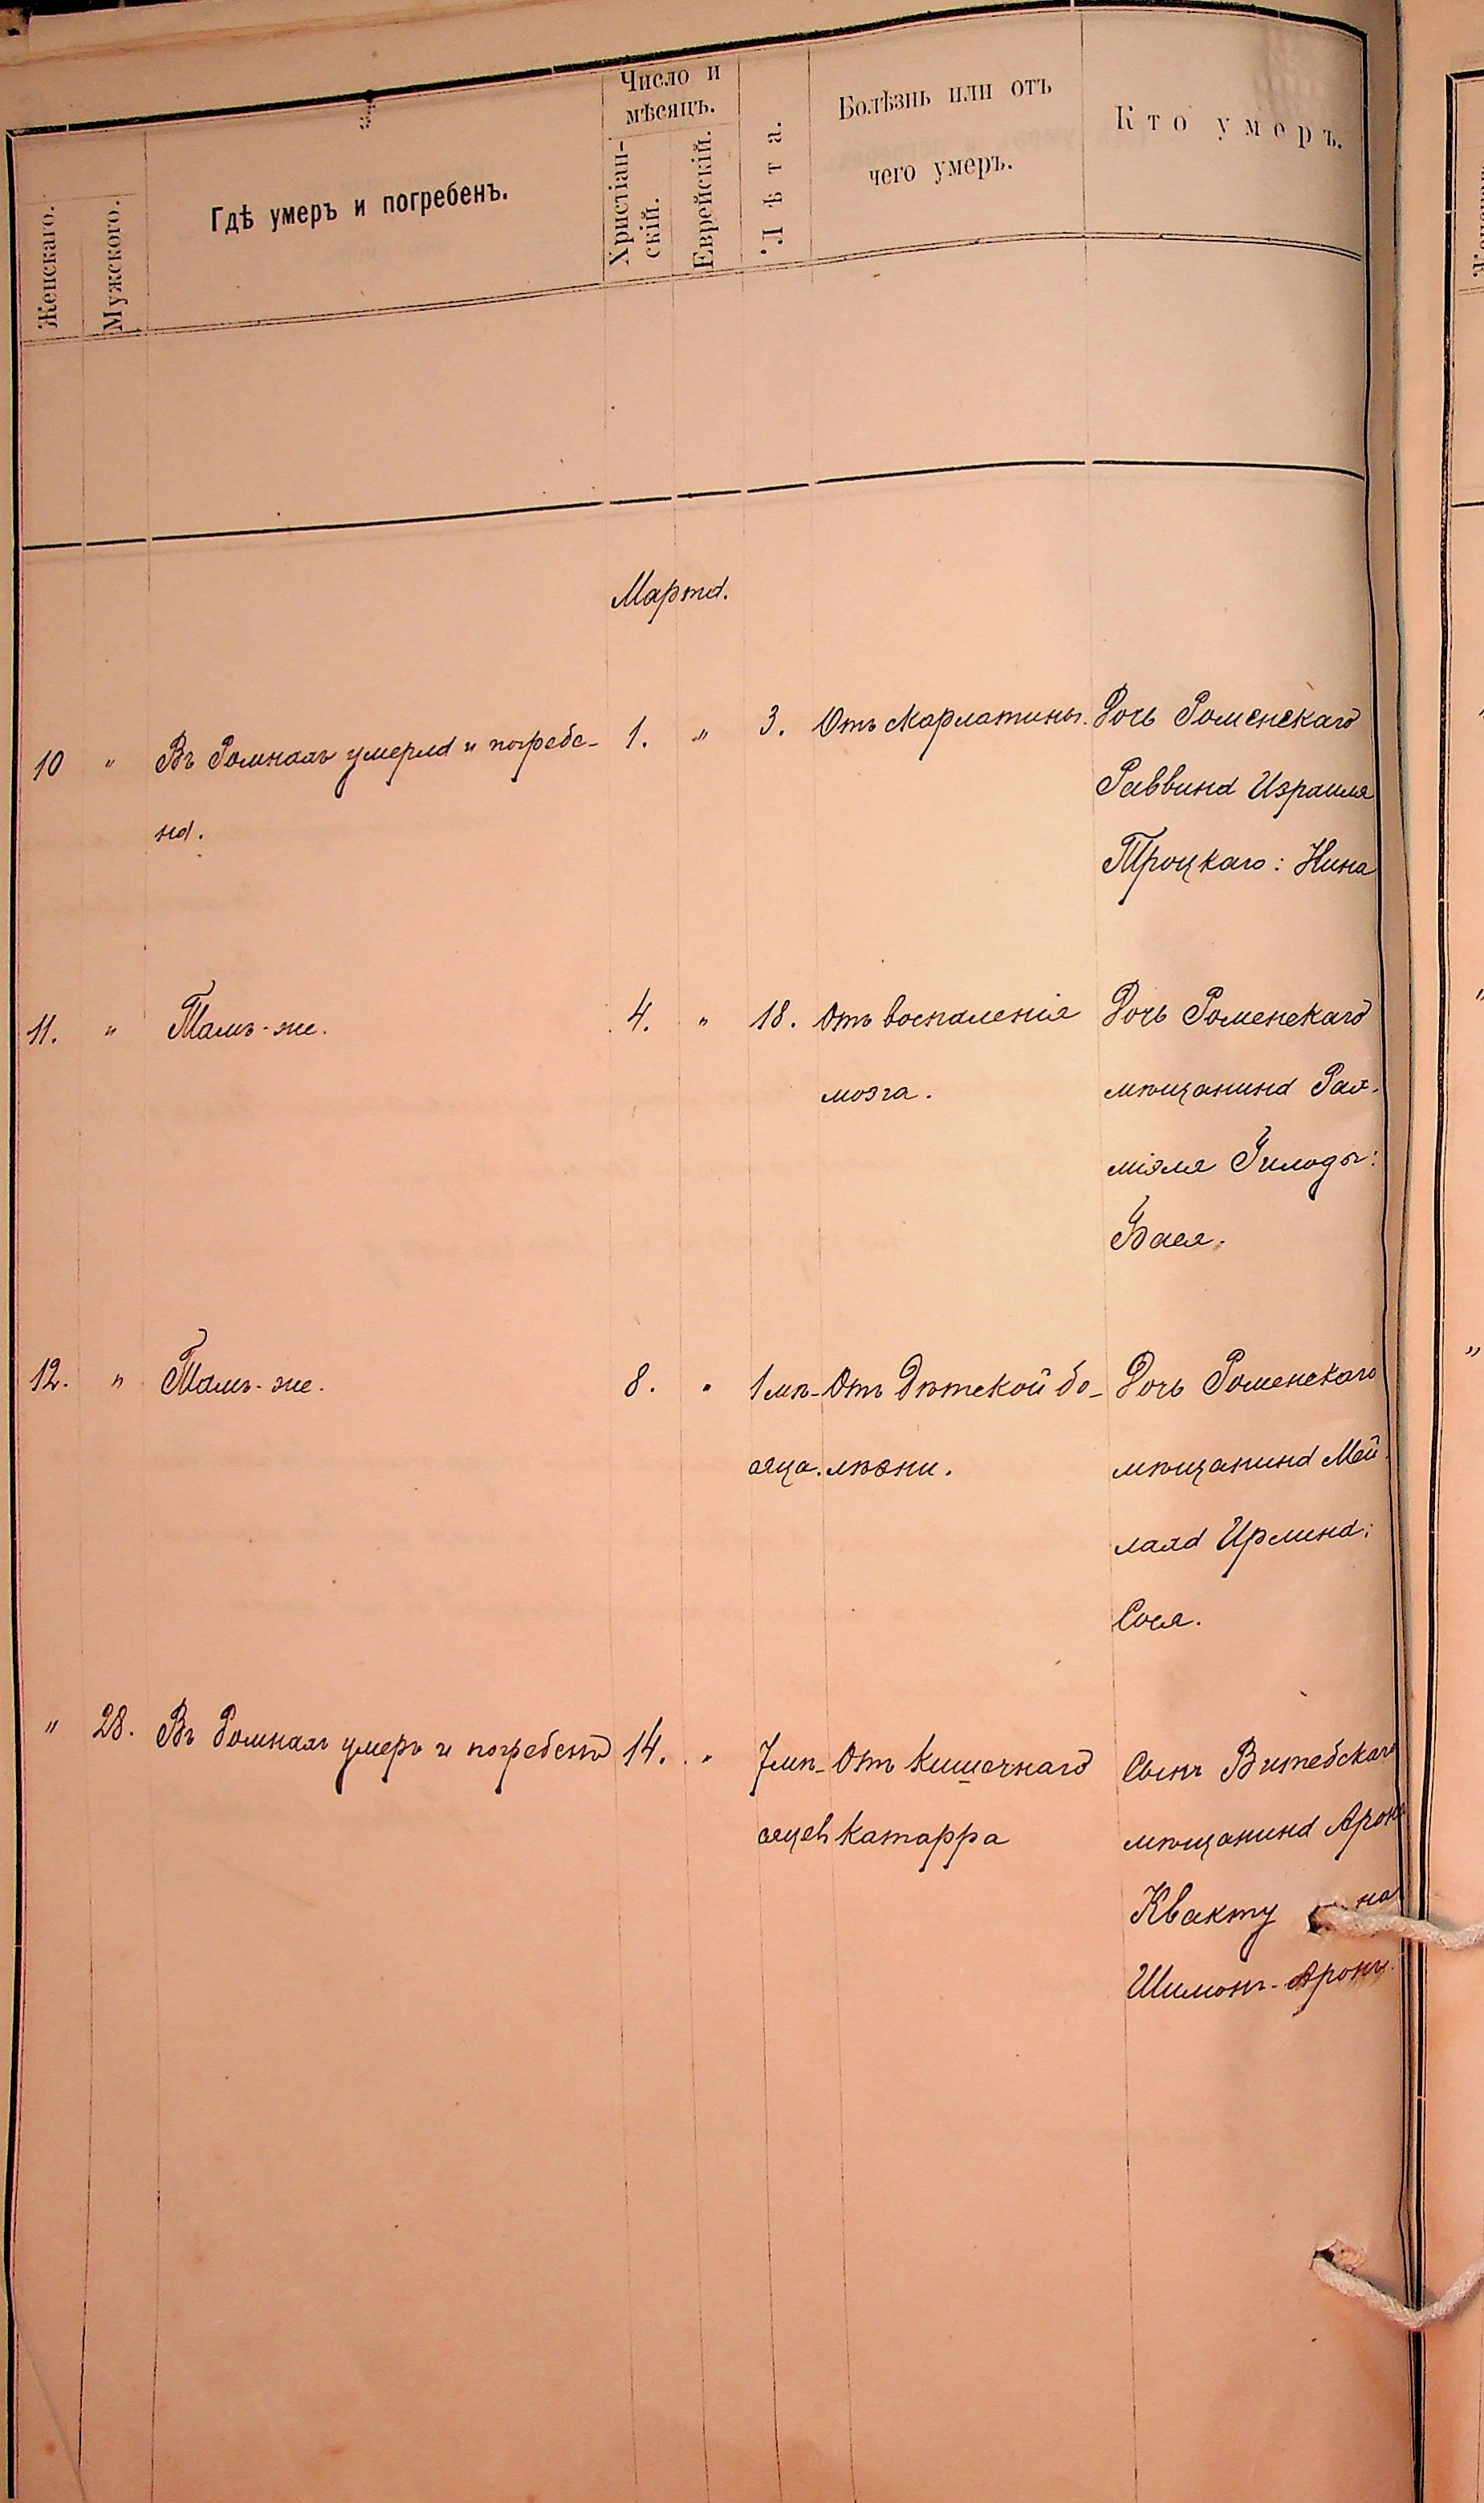 Женскаго.
Мужского.
Гдѣ умеръ и погребенъ.
Число и
мѣсяцъ.
Христіан-
скій.
Еврейскій.
Лѣта.
Болѣзнь или отъ
чего умеръ.
Кто умеръ.
Марта.
10 " Въ Ромнахъ умерла и погребе- 1. " 3. Отъ скарлатины. Дочь Роменскаго
на. Раввина Израиля
Троцкаго: Нина
11. " Тамъ-же. 4. " 18. Отъ воспаленія Дочь Роменскаго
мозга. мѣщанина Рах-
міэля Гилоды:
Бася.
12. " Тамъ-же. 8. " 1 мѣ- Отъ дѣтской бо- Дочь Роменскаго
сяца. лѣзни. мѣщанина Мей-
лаха Ирлина:
Сося.
" 28. Въ Ромнахъ умеръ и погребенъ 14. " 7 мѣ- Отъ кишечнаго Сынъ Витебскаго
сяцевъ катарра мѣщанина Арона
Квакту на
Шимонъ-Аронъ.